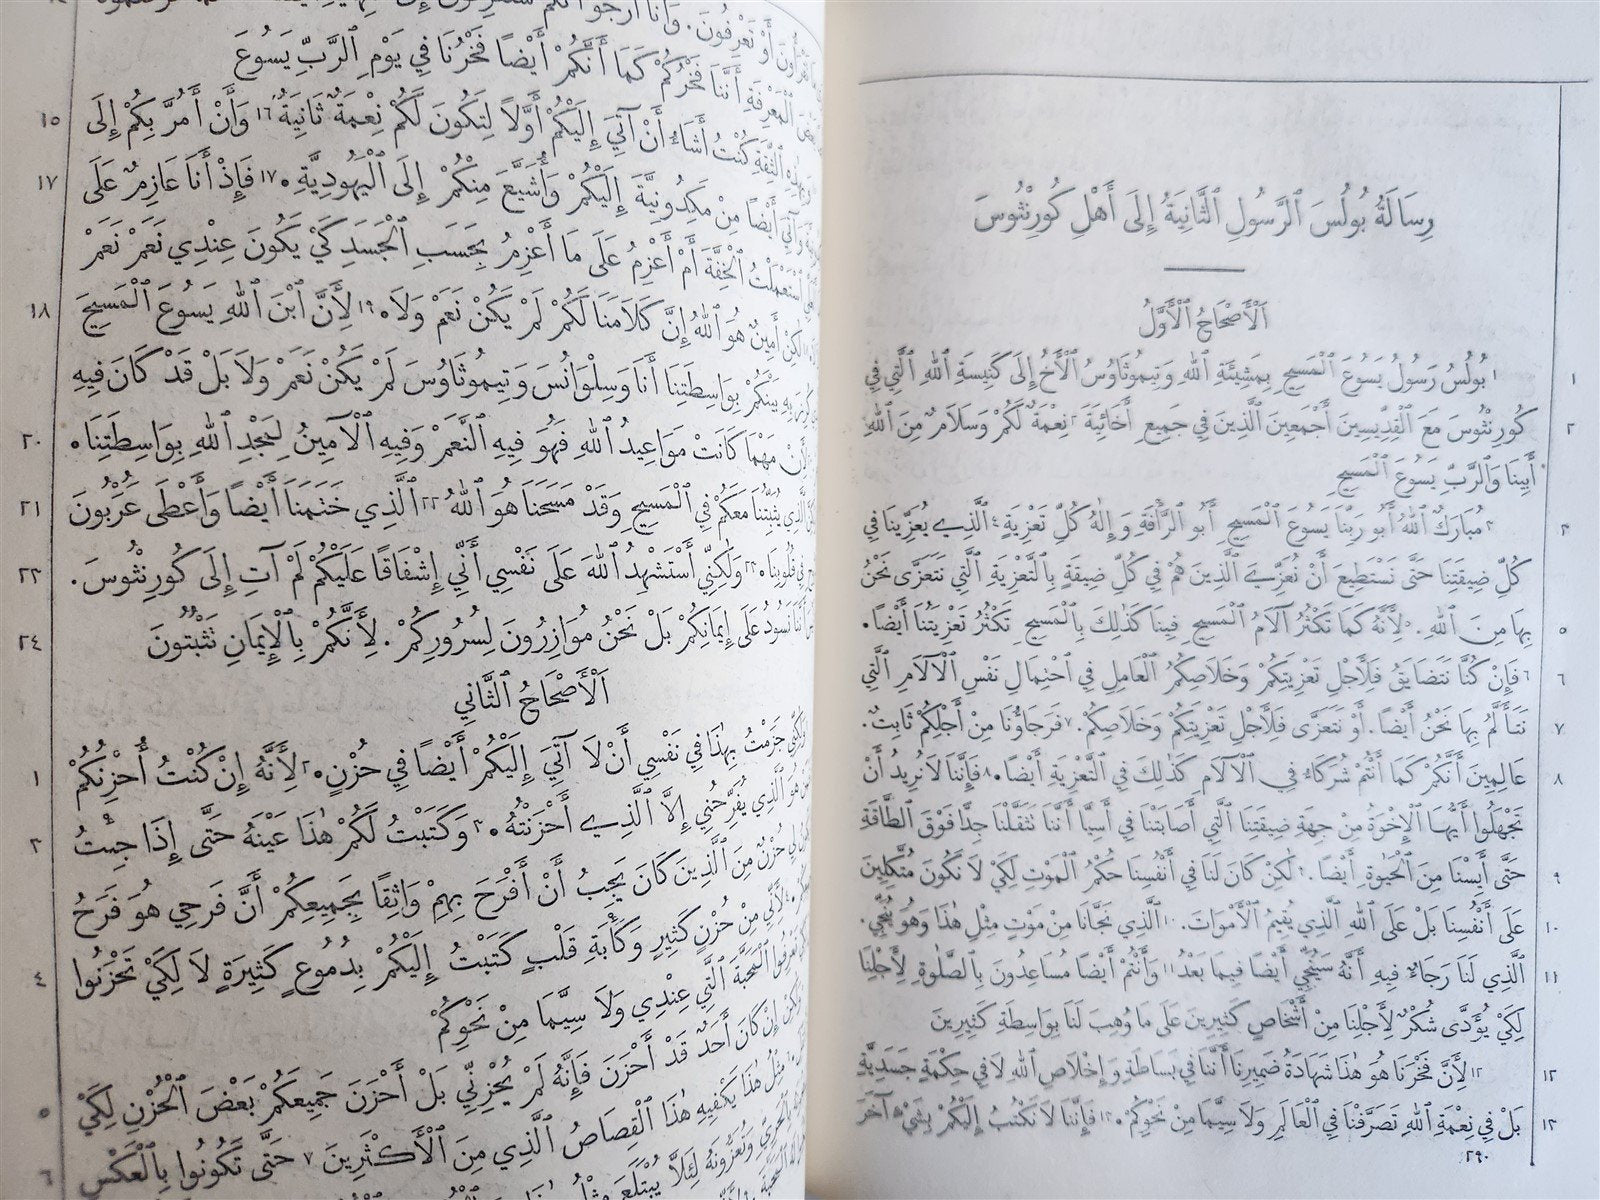 رِسَالَةُ بُولُسَ ٱلرَّسُولِ ٱلثَّانِيَةُ إِلَى أَهْلِ كُورِنْثُوسَ
اَلْأَصْحَاحُ ٱلْأَوَّلُ
١ ١ بُولُسُ رَسُولُ يَسُوعَ ٱلْمَسِيحِ بِمَشِيئَةِ ٱللهِ وَتِيمُوثَاوُسُ ٱلْأَخُ إِلَى كَنِيسَةِ ٱللهِ ٱلَّتِي فِي
٢ كُورِنْثُوسَ مَعَ ٱلْقِدِّيسِينَ أَجْمَعِينَ ٱلَّذِينَ فِي جَمِيعِ أَخَائِيَةَ ٢ نِعْمَةٌ لَكُمْ وَسَلَامٌ مِنَ ٱللهِ
أَبِينَا وَٱلرَّبِّ يَسُوعَ ٱلْمَسِيحِ
٣ ٣ مُبَارَكٌ ٱللهُ أَبُو رَبِّنَا يَسُوعَ ٱلْمَسِيحِ أَبُو ٱلرَّأْفَةِ وَإِلٰهُ كُلِّ تَعْزِيَةٍ ٤ ٱلَّذِي يُعَزِّينَا فِي
كُلِّ ضِيقَتِنَا حَتَّى نَسْتَطِيعَ أَنْ نُعَزِّيَ ٱلَّذِينَ هُمْ فِي كُلِّ ضِيقَةٍ بِٱلتَّعْزِيَةِ ٱلَّتِي نَتَعَزَّى نَحْنُ
٥ بِهَا مِنَ ٱللهِ. ٥ لِأَنَّهُ كَمَا تَكْثُرُ آلَامُ ٱلْمَسِيحِ فِينَا كَذٰلِكَ بِٱلْمَسِيحِ تَكْثُرُ تَعْزِيَتُنَا أَيْضًا.
٦ ٦ فَإِنْ كُنَّا نَتَضَايَقُ فَلِأَجْلِ تَعْزِيَتِكُمْ وَخَلَاصِكُمُ ٱلْعَامِلِ فِي ٱحْتِمَالِ نَفْسِ ٱلْآلَامِ ٱلَّتِي
٧ نَتَأَلَّمُ بِهَا نَحْنُ أَيْضًا. أَوْ نَتَعَزَّى فَلِأَجْلِ تَعْزِيَتِكُمْ وَخَلَاصِكُمْ. ٧ فَرَجَاؤُنَا مِنْ أَجْلِكُمْ ثَابِتٌ.
٨ عَالِمِينَ أَنَّكُمْ كَمَا أَنْتُمْ شُرَكَاءُ فِي ٱلْآلَامِ كَذٰلِكَ فِي ٱلتَّعْزِيَةِ أَيْضًا. ٨ فَإِنَّنَا لَا نُرِيدُ أَنْ
تَجْهَلُوا أَيُّهَا ٱلْإِخْوَةُ مِنْ جِهَةِ ضِيقَتِنَا ٱلَّتِي أَصَابَتْنَا فِي أَسِيَّا أَنَّنَا تَثَقَّلْنَا جِدًّا فَوْقَ ٱلطَّاقَةِ
٩ حَتَّى أَيِسْنَا مِنَ ٱلْحَيٰوةِ أَيْضًا. ٩ لٰكِنْ كَانَ لَنَا فِي أَنْفُسِنَا حُكْمُ ٱلْمَوْتِ لِكَيْ لَا نَكُونَ مُتَّكِلِينَ
١٠ عَلَى أَنْفُسِنَا بَلْ عَلَى ٱللهِ ٱلَّذِي يُقِيمُ ٱلْأَمْوَاتَ. ١٠ ٱلَّذِي نَجَّانَا مِنْ مَوْتٍ مِثْلِ هٰذَا وَهُوَ يُنَجِّي.
١١ ٱلَّذِي لَنَا رَجَاءٌ فِيهِ أَنَّهُ سَيُنَجِّي أَيْضًا فِيمَا بَعْدُ ١١ وَأَنْتُمْ أَيْضًا مُسَاعِدُونَ بِٱلصَّلٰوةِ لِأَجْلِنَا
لِكَيْ يُؤَدَّى شُكْرٌ لِأَجْلِنَا مِنْ أَشْخَاصٍ كَثِيرِينَ عَلَى مَا وُهِبَ لَنَا بِوَاسِطَةِ كَثِيرِينَ
١٢ ١٢ لِأَنَّ فَخْرَنَا هُوَ هٰذَا شَهَادَةُ ضَمِيرِنَا أَنَّنَا فِي بَسَاطَةٍ وَإِخْلَاصِ ٱللهِ لَا فِي حِكْمَةٍ جَسَدِيَّةٍ
١٣ بَلْ فِي نِعْمَةِ ٱللهِ تَصَرَّفْنَا فِي ٱلْعَالَمِ وَلَا سِيَّمَا مِنْ نَحْوِكُمْ. ١٣ فَإِنَّنَا لَا نَكْتُبُ إِلَيْكُمْ بِشَيْءٍ آخَرَ
٢٩٠
أَوْ تَعْرِفُونَ. وَأَنَا أَرْجُو
ٱلْمَعْرِفَةِ أَنَّنَا فَخْرُكُمْ كَمَا أَنَّكُمْ أَيْضًا فَخْرُنَا فِي يَوْمِ ٱلرَّبِّ يَسُوعَ
١٥ ٱلثِّقَةِ كُنْتُ أَشَاءُ أَنْ آتِيَ إِلَيْكُمْ أَوَّلًا لِتَكُونَ لَكُمْ نِعْمَةٌ ثَانِيَةٌ ١٦ وَأَنْ أَمُرَّ بِكُمْ إِلَى
١٧ وَآتِيَ أَيْضًا مِنْ مَكِدُونِيَّةَ إِلَيْكُمْ وَأُشَيَّعَ مِنْكُمْ إِلَى ٱلْيَهُودِيَّةِ. ١٧ فَإِذْ أَنَا عَازِمٌ عَلَى
ٱسْتَعْمَلْتُ ٱلْخِفَّةَ أَمْ أَعْزِمُ عَلَى مَا أَعْزِمُ بِحَسَبِ ٱلْجَسَدِ كَيْ يَكُونَ عِنْدِي نَعَمْ نَعَمْ
١٨ لٰكِنْ أَمِينٌ هُوَ ٱللهُ إِنَّ كَلَامَنَا لَكُمْ لَمْ يَكُنْ نَعَمْ وَلَا. ١٩ لِأَنَّ ٱبْنَ ٱللهِ يَسُوعَ ٱلْمَسِيحَ
بَيْنَكُمْ بِوَاسِطَتِنَا أَنَا وَسِلْوَانُسَ وَتِيمُوثَاوُسَ لَمْ يَكُنْ نَعَمْ وَلَا بَلْ قَدْ كَانَ فِيهِ
٢٠ مَهْمَا كَانَتْ مَوَاعِيدُ ٱللهِ فَهُوَ فِيهِ ٱلنَّعَمْ وَفِيهِ ٱلْآمِينُ لِمَجْدِ ٱللهِ بِوَاسِطَتِنَا.
٢١ ٱلَّذِي يُثَبِّتُنَا مَعَكُمْ فِي ٱلْمَسِيحِ وَقَدْ مَسَحَنَا هُوَ ٱللهُ ٢٢ ٱلَّذِي خَتَمَنَا أَيْضًا وَأَعْطَى عُرْبُونَ
٢٣ فِي قُلُوبِنَا. ٢٣ وَلٰكِنِّي أَسْتَشْهِدُ ٱللهَ عَلَى نَفْسِي أَنِّي إِشْفَاقًا عَلَيْكُمْ لَمْ آتِ إِلَى كُورِنْثُوسَ.
٢٤ أَنَّنَا نَسُودُ عَلَى إِيمَانِكُمْ بَلْ نَحْنُ مُوَازِرُونَ لِسُرُورِكُمْ. لِأَنَّكُمْ بِٱلْإِيمَانِ تَثْبُتُونَ
اَلْأَصْحَاحُ ٱلثَّانِي
١ جَزَمْتُ بِهٰذَا فِي نَفْسِي أَنْ لَا آتِيَ إِلَيْكُمْ أَيْضًا فِي حُزْنٍ. ٢ لِأَنَّهُ إِنْ كُنْتُ أُحْزِنُكُمْ
٢ هُوَ ٱلَّذِي يُفَرِّحُنِي إِلَّا ٱلَّذِي أَحْزَنْتُهُ. ٣ وَكَتَبْتُ لَكُمْ هٰذَا عَيْنَهُ حَتَّى إِذَا جِئْتُ
لِي حُزْنٌ مِنَ ٱلَّذِينَ كَانَ يَجِبُ أَنْ أَفْرَحَ بِهِمْ وَاثِقًا بِجَمِيعِكُمْ أَنَّ فَرَحِي هُوَ فَرَحُ
٤ لِأَنِّي مِنْ حُزْنٍ كَثِيرٍ وَكَآبَةِ قَلْبٍ كَتَبْتُ إِلَيْكُمْ بِدُمُوعٍ كَثِيرَةٍ لَا لِكَيْ تَحْزَنُوا
ٱلْمَحَبَّةَ ٱلَّتِي عِنْدِي وَلَا سِيَّمَا مِنْ نَحْوِكُمْ
٥ إِنْ كَانَ أَحَدٌ قَدْ أَحْزَنَ فَإِنَّهُ لَمْ يُحْزِنِّي بَلْ أَحْزَنَ جَمِيعَكُمْ بَعْضَ ٱلْحُزْنِ لِكَيْ
٦ مِثْلُ هٰذَا يَكْفِيهِ هٰذَا ٱلْقِصَاصُ ٱلَّذِي مِنَ ٱلْأَكْثَرِينَ ٧ حَتَّى تَكُونُوا بِٱلْعَكْسِ
وَتُعَزُّونَهُ لِئَلَّا يُبْتَلَعَ